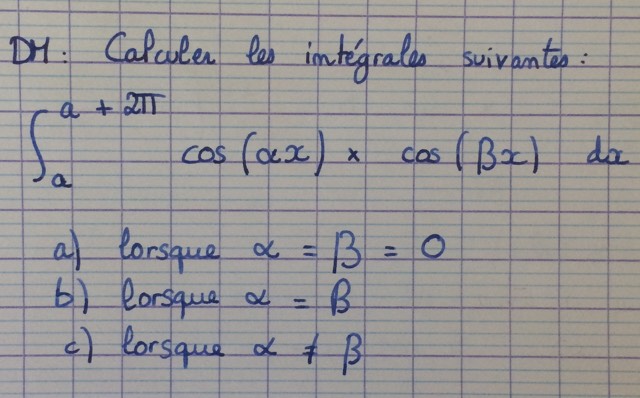 DM : Calculer les intégrales suivantes :
∫ₐ^(a + 2π) cos(αx) × cos(βx) dx
a) lorsque α = β = 0
b) lorsque α = β
c) lorsque α ≠ β